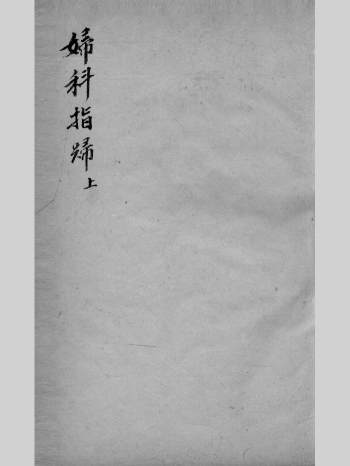 婦科指歸上